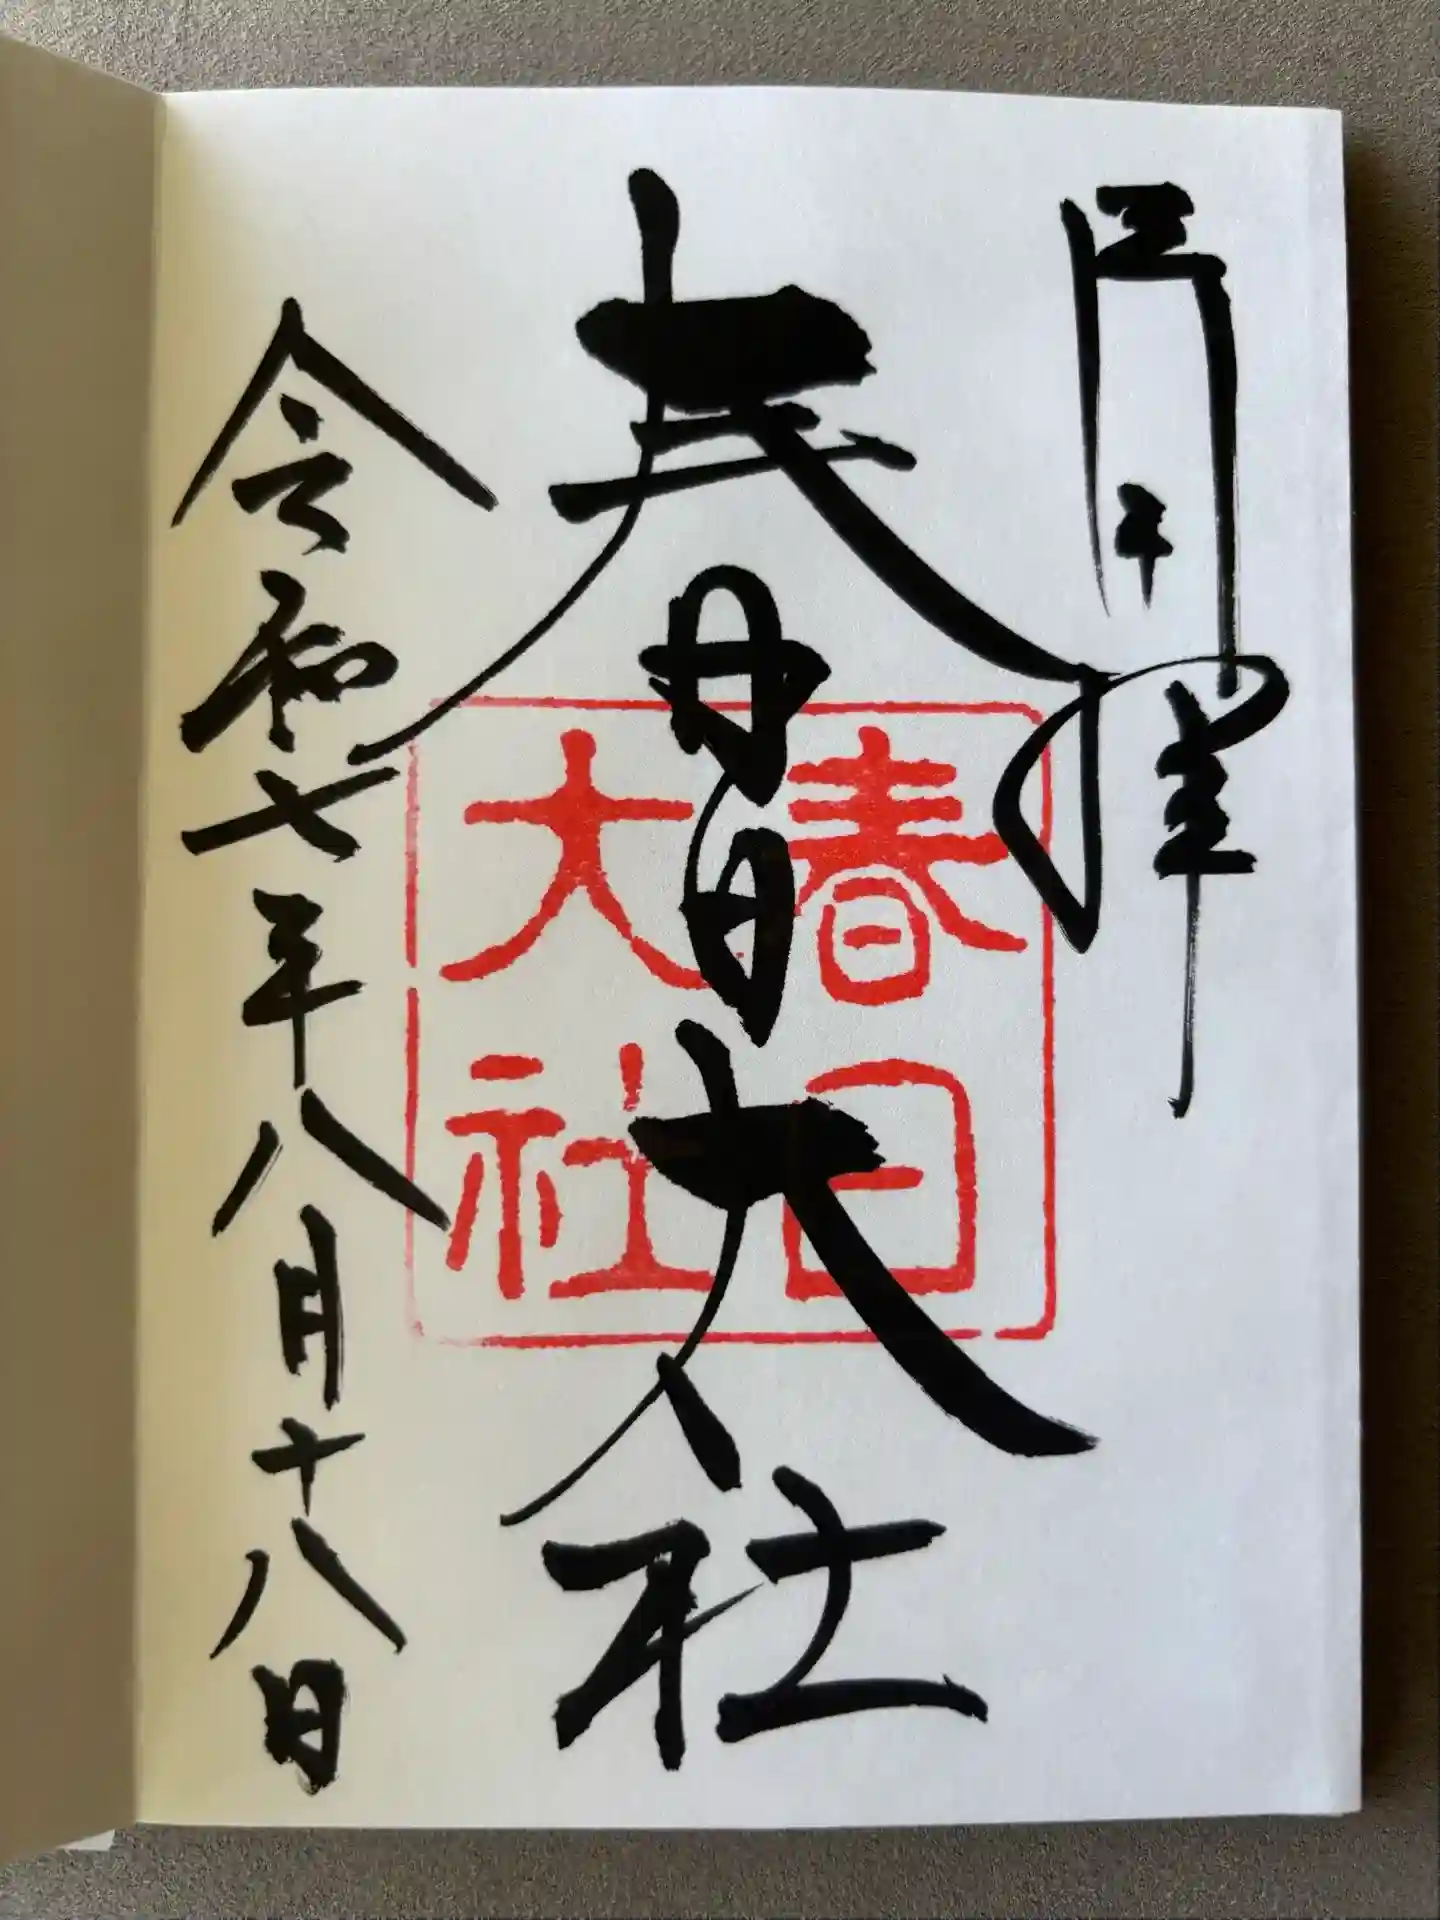 拝
春日大社
春日
大社
令和七年八月十八日